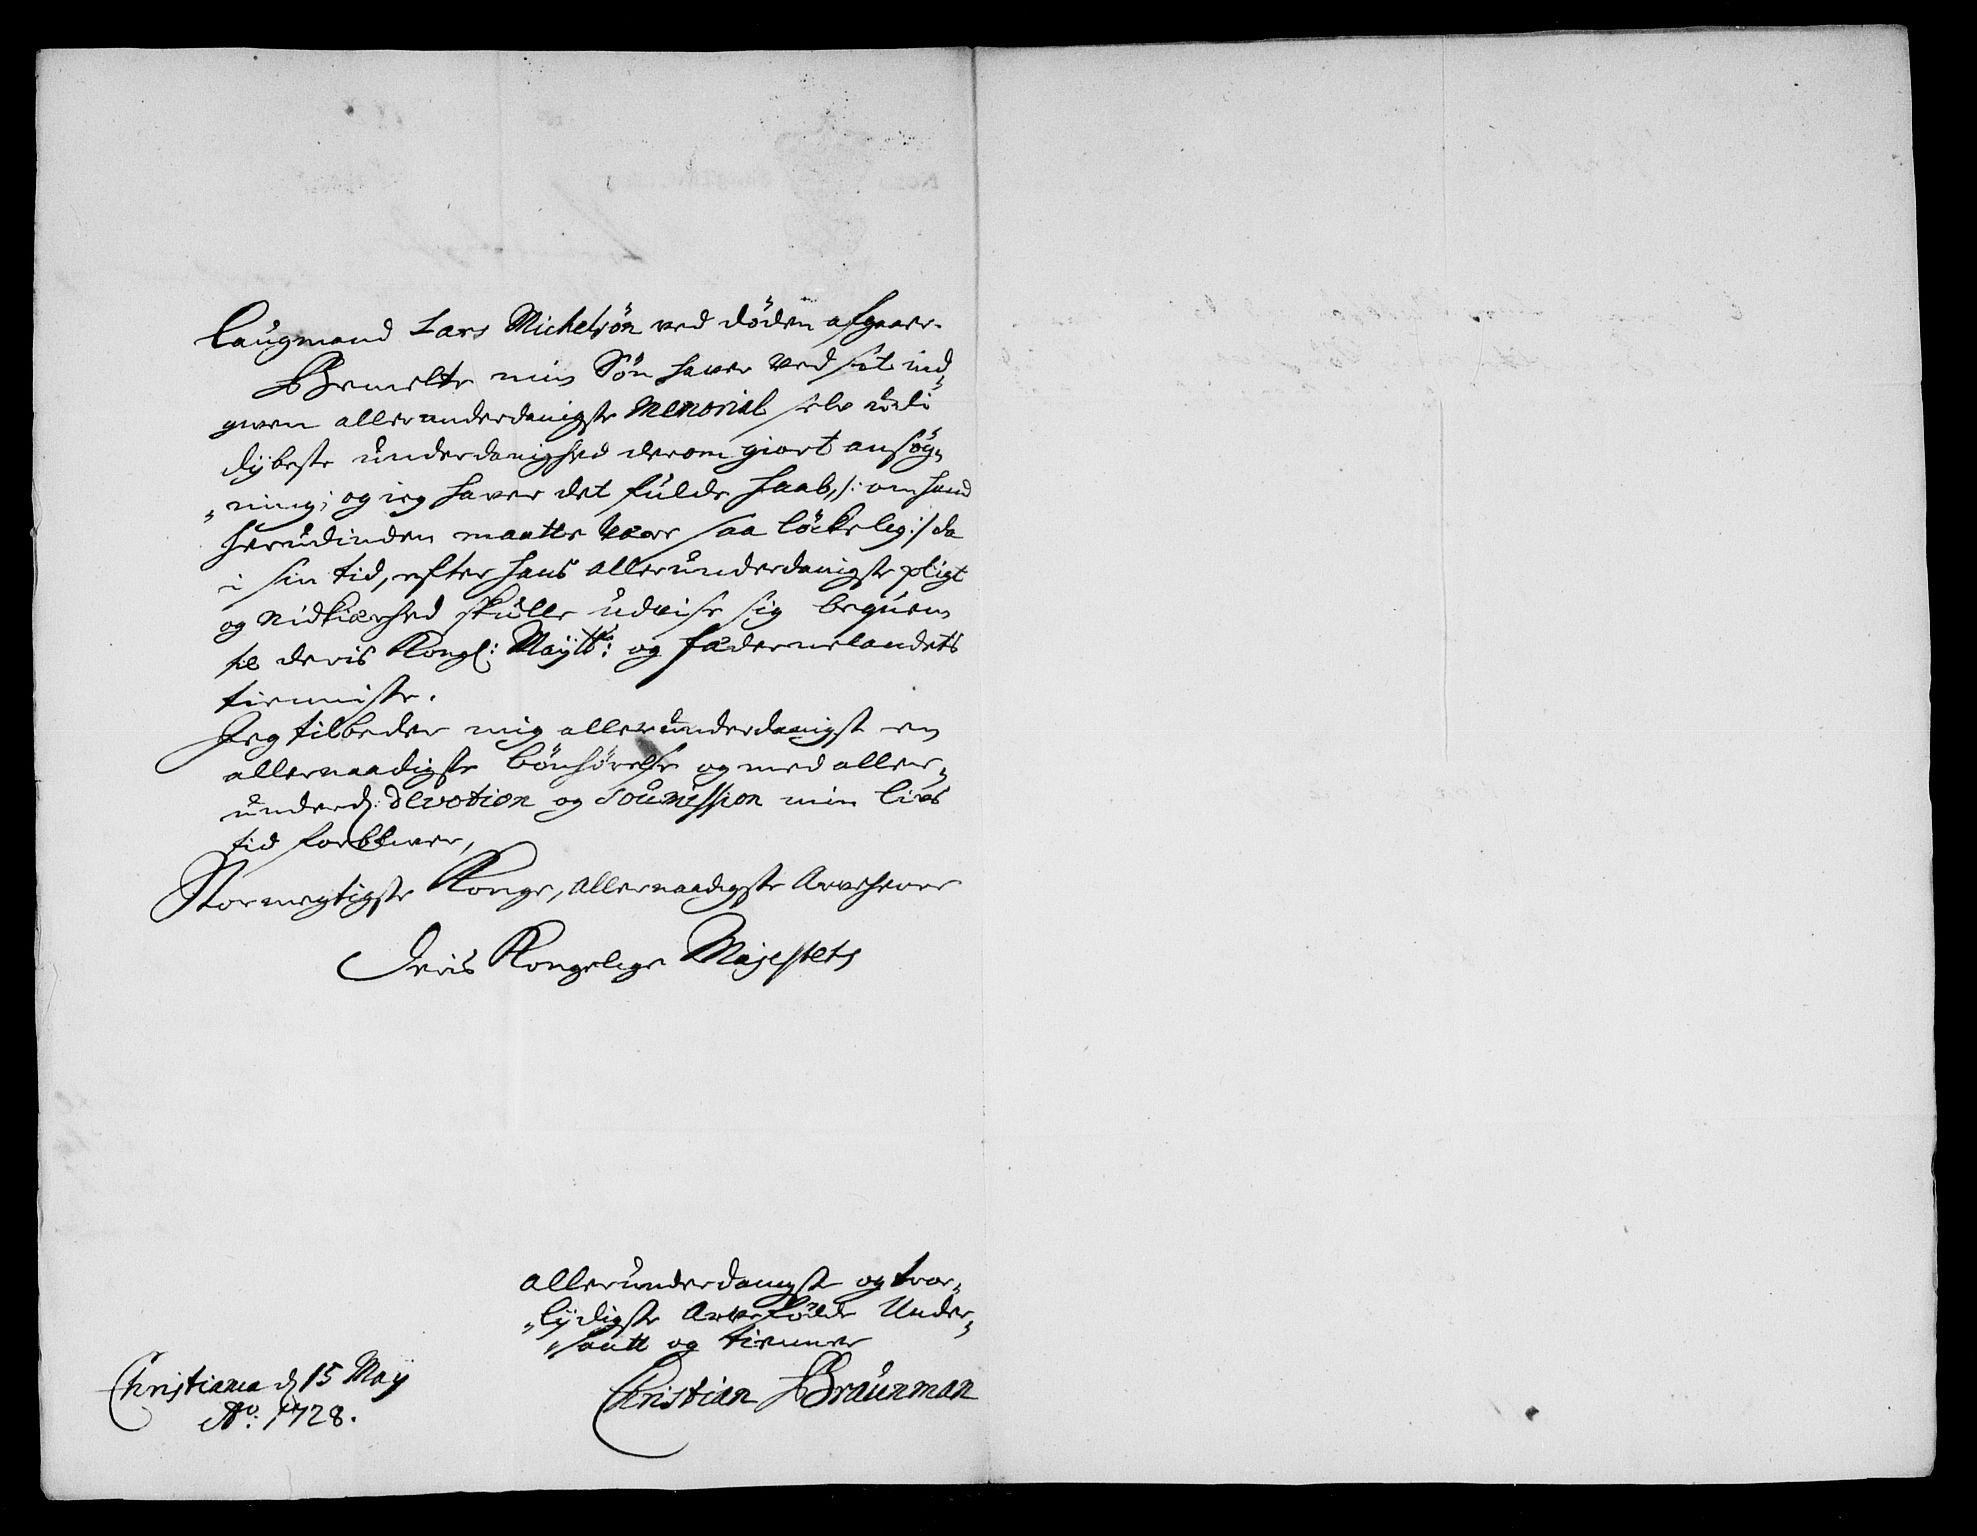 Laugmand Lars Michelsön ved döden afgaaer.
Bemelte min Sön haver ved sit ind„
given allerunderdanigste Memorial selv udi
dÿbeste underdanighed derom giort ansög„
„ning; og ieg haver det fulde haab, /: om hand
herudinden maatte være saa löckelig :/ da
i sin tid, efter hans allerunderdanigste pligt
og Nidkiærhed skulle udvise sig beqvem
til deris Kongl: Maÿtts: og fædernelandets
tienniste.
Jeg tilbeder mig allerunderdanigst en
allernaadigste bönhörelse og med aller„
underd: devotion og soumission min livs
tid forbliver,
Stormegtigste Konge, allernaadigste Arveherre
Deris Kongelige Majestets
allerunderdanigst og troe„
„lÿdigste Arvefödde Under„
„saatt og tienner
Christian Braunman
Christiania d 15 Maÿ
Ao: 1728.